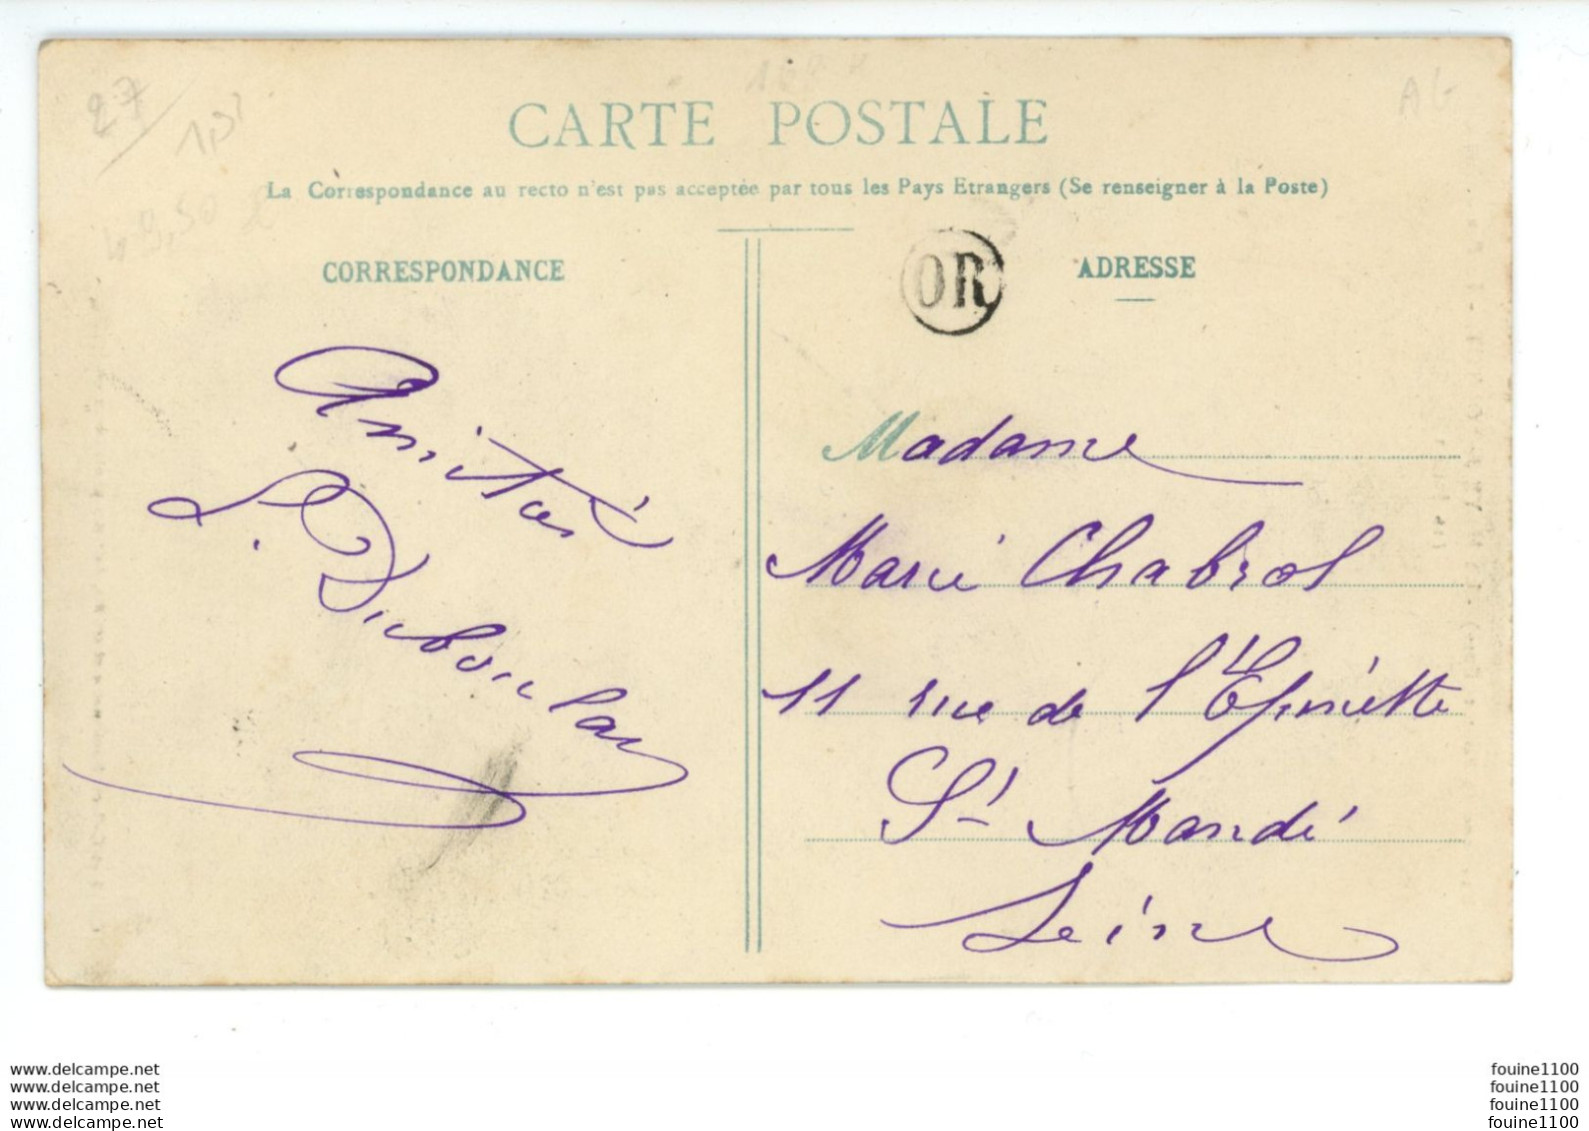 27
CARTE POSTALE
La Correspondance au recto n'est pas acceptée par tous les Pays Etrangers (Se renseigner à la Poste)
CORRESPONDANCE
Amitiés
L. Duboulay
OR
ADRESSE
Madame
Marie Chabrol
11 rue de l'Epinette
St Mandé
Seine
www.delcampe.net
www.delcampe.net
www.delcampe.net
www.delcampe.net
fouine1100
fouine1100
fouine1100
fouine1100